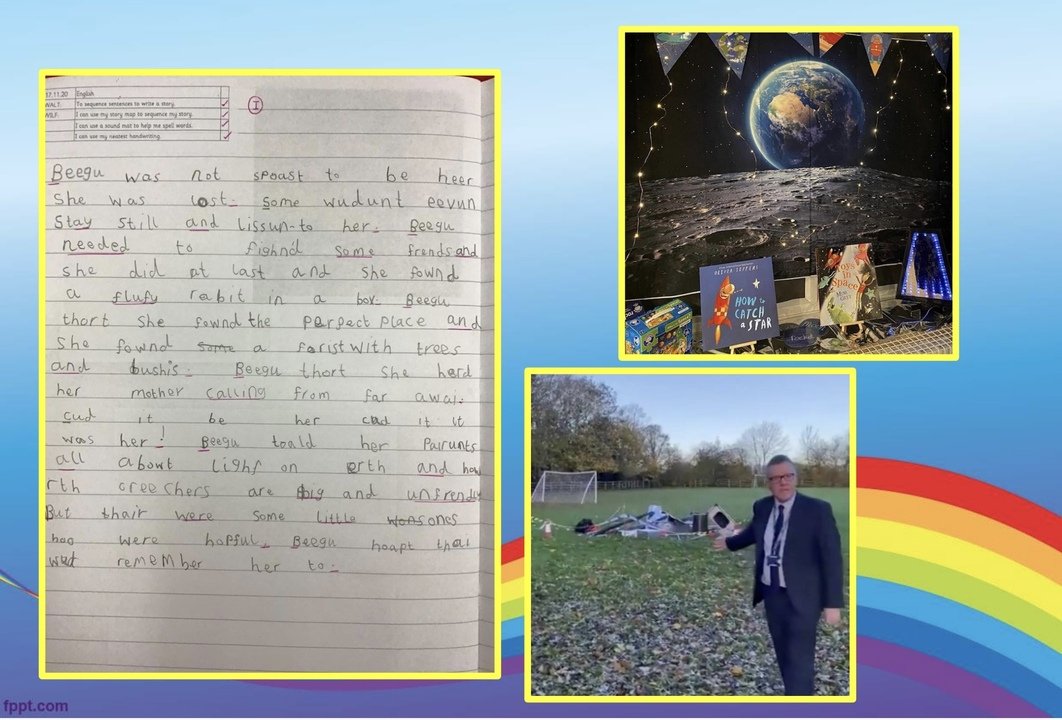 17.11.20 English
WALT: To sequence sentences to write a story.
WILF: I can use my story map to sequence my story.
I can use a sound mat to help me spell words.
I can use my neatest handwriting.
I
Beegu was not spoast to be heer
She was lost. Some wudunt eevun
Stay still and lissun to her. Beegu
needed to fighnd some frends and
she did at last and she fownd
a flufy rabit in a box. Beegu
thort she fownd the perfect place and
she fownd some a forist with trees
and bushis. Beegu thort she herd
her mother calling from far away.
cud it be her cud it it
was her! Beegu toald her Pairunts
all abowt on erth and how
rth creechers are big and unfrendly
But thair were some little wons ones
hoo were hopful. Beegu hoapt thai
wud remember her to.
OLIVER JEFFERS
HOW to
CATCH
a STAR
Toys
in
Space
fppt.com